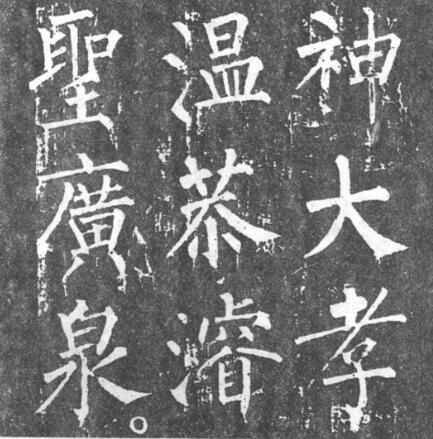 神大孝
温恭濬
聖廣泉